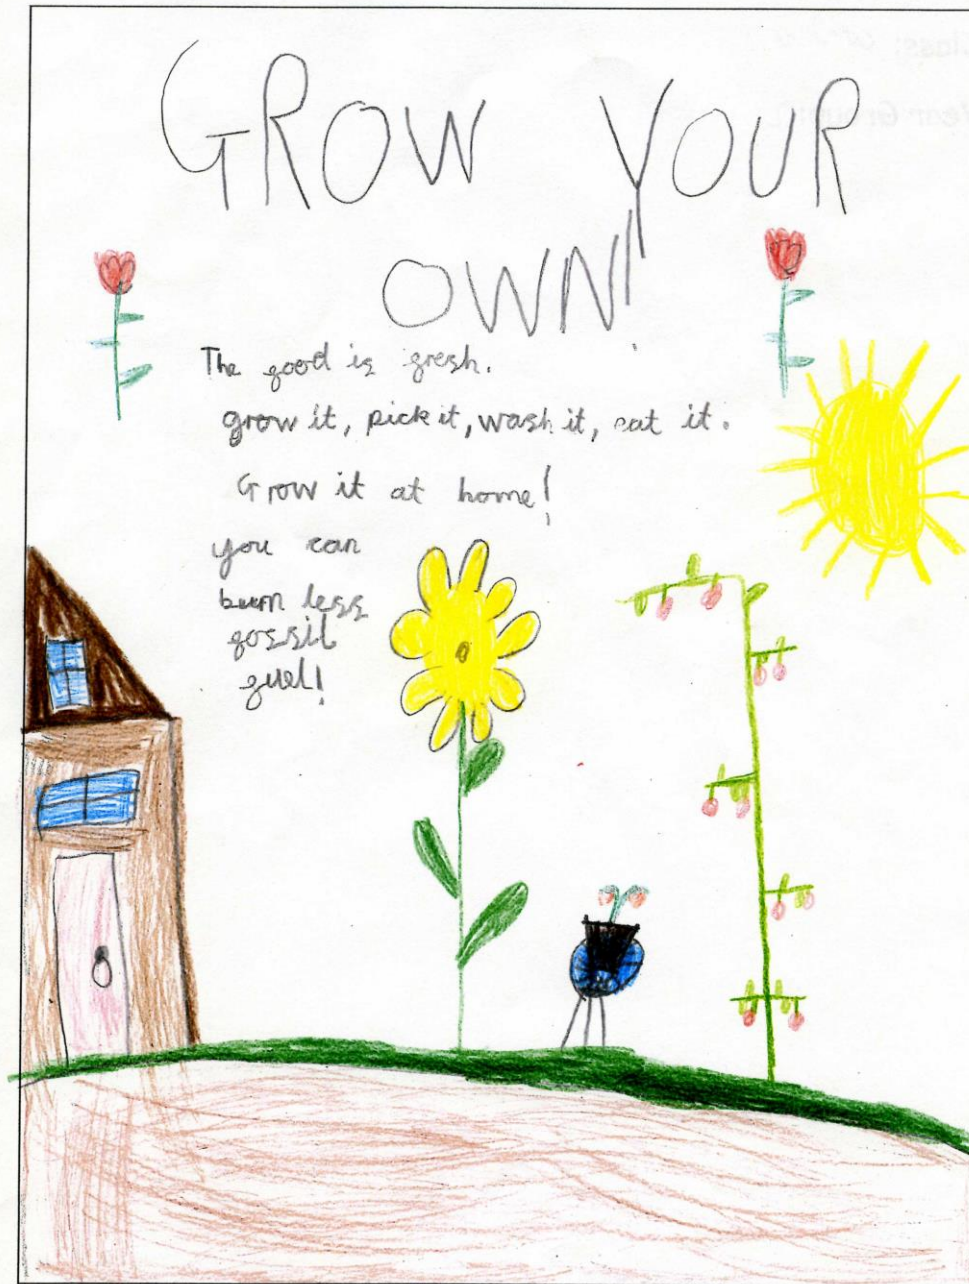 GROW YOUR
OWN!
The food is fresh.
grow it, pick it, wash it, eat it.
Grow it at home!
you can
burn less
fossil
fuel!